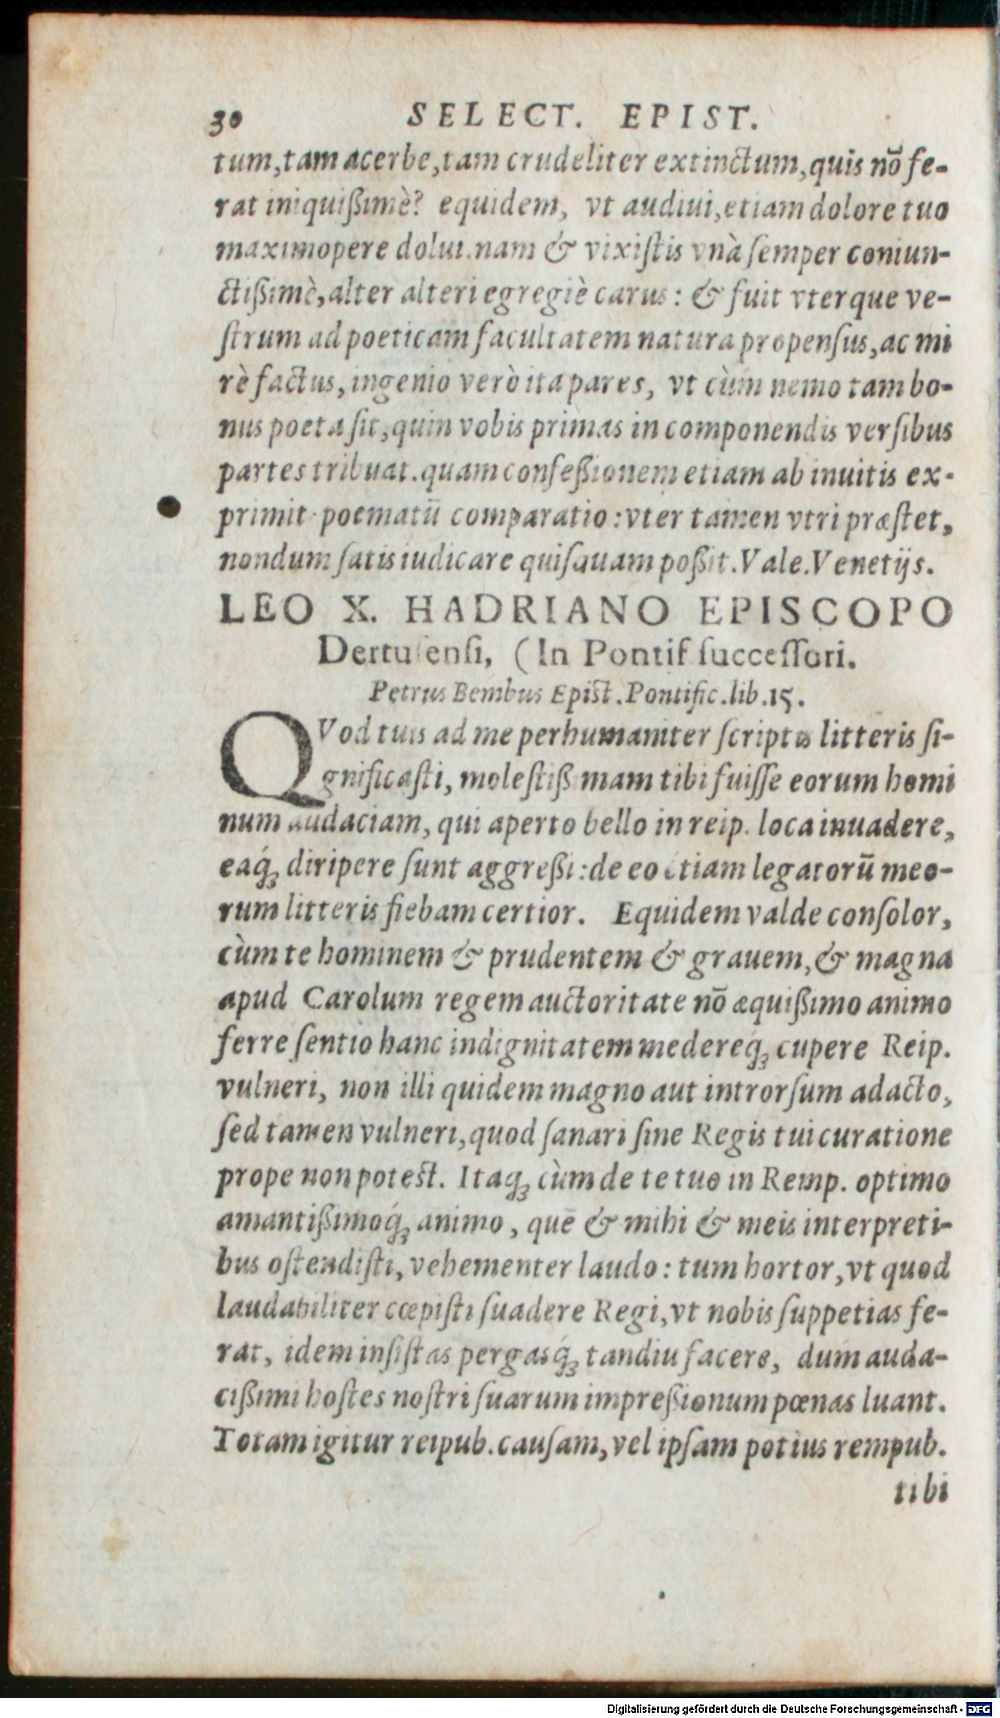 30 SELECT. EPIST.
tum, tam acerbe, tam crudeliter extinctum, quis nõ fe-
rat iniquißimè? equidem, vt audiui, etiam dolore tuo
maximopere dolui. nam & vixiſtis vnà ſemper coniun-
ctißimè, alter alteri egregiè carus: & fuit vterque ve-
ſtrum ad poeticam facultatem natura propenſus, ac mi
rè factus, ingenio verò ita pares, vt cùm nemo tam bo-
nus poeta ſit, quin vobis primas in componendis verſibus
partes tribuat. quam confeßionem etiam ab inuitis ex-
primit poematũ comparatio: vter tamen vtri præſtet,
nondum ſatis iudicare quiſquam poßit. Vale. Venetijs.
LEO X. HADRIANO EPISCOPO
Dertuſenſi, (In Pontif ſucceſſori.
Petrus Bembus Epist. Pontific. lib. 15.
QVod tuis ad me perhumaniter ſcriptis litteris ſi-
gnificaſti, moleſtißimam tibi fuiſſe eorum homi
num audaciam, qui aperto bello in reip. loca inuadere,
eaq́; diripere ſunt aggreßi: de eo etiam legatorũ meo-
rum litteris fiebam certior. Equidem valde conſolor,
cùm te hominem & prudentem & grauem, & magna
apud Carolum regem auctoritate nõ æquißimo animo
ferre ſentio hanc indignitatem medereq́; cupere Reip.
vulneri, non illi quidem magno aut introrſum adacto,
ſed tamen vulneri, quod ſanari ſine Regis tui curatione
prope non potest. Itaq; cùm de te tuo in Remp. optimo
amantißimoq́; animo, quẽ & mihi & meis interpreti-
bus oſtendiſti, vehementer laudo: tum hortor, vt quod
laudabiliter cœpiſti ſuadere Regi, vt nobis ſuppetias fe-
rat, idem inſiſtas pergasq́; tandiu facere, dum auda-
cißimi hoſtes noſtri ſuarum impreßionum pœnas luant.
Totam igitur reipub. cauſam, vel ipſam potius rempub.
tibi
Digitalisierung gefördert durch die Deutsche Forschungsgemeinschaft - DFG